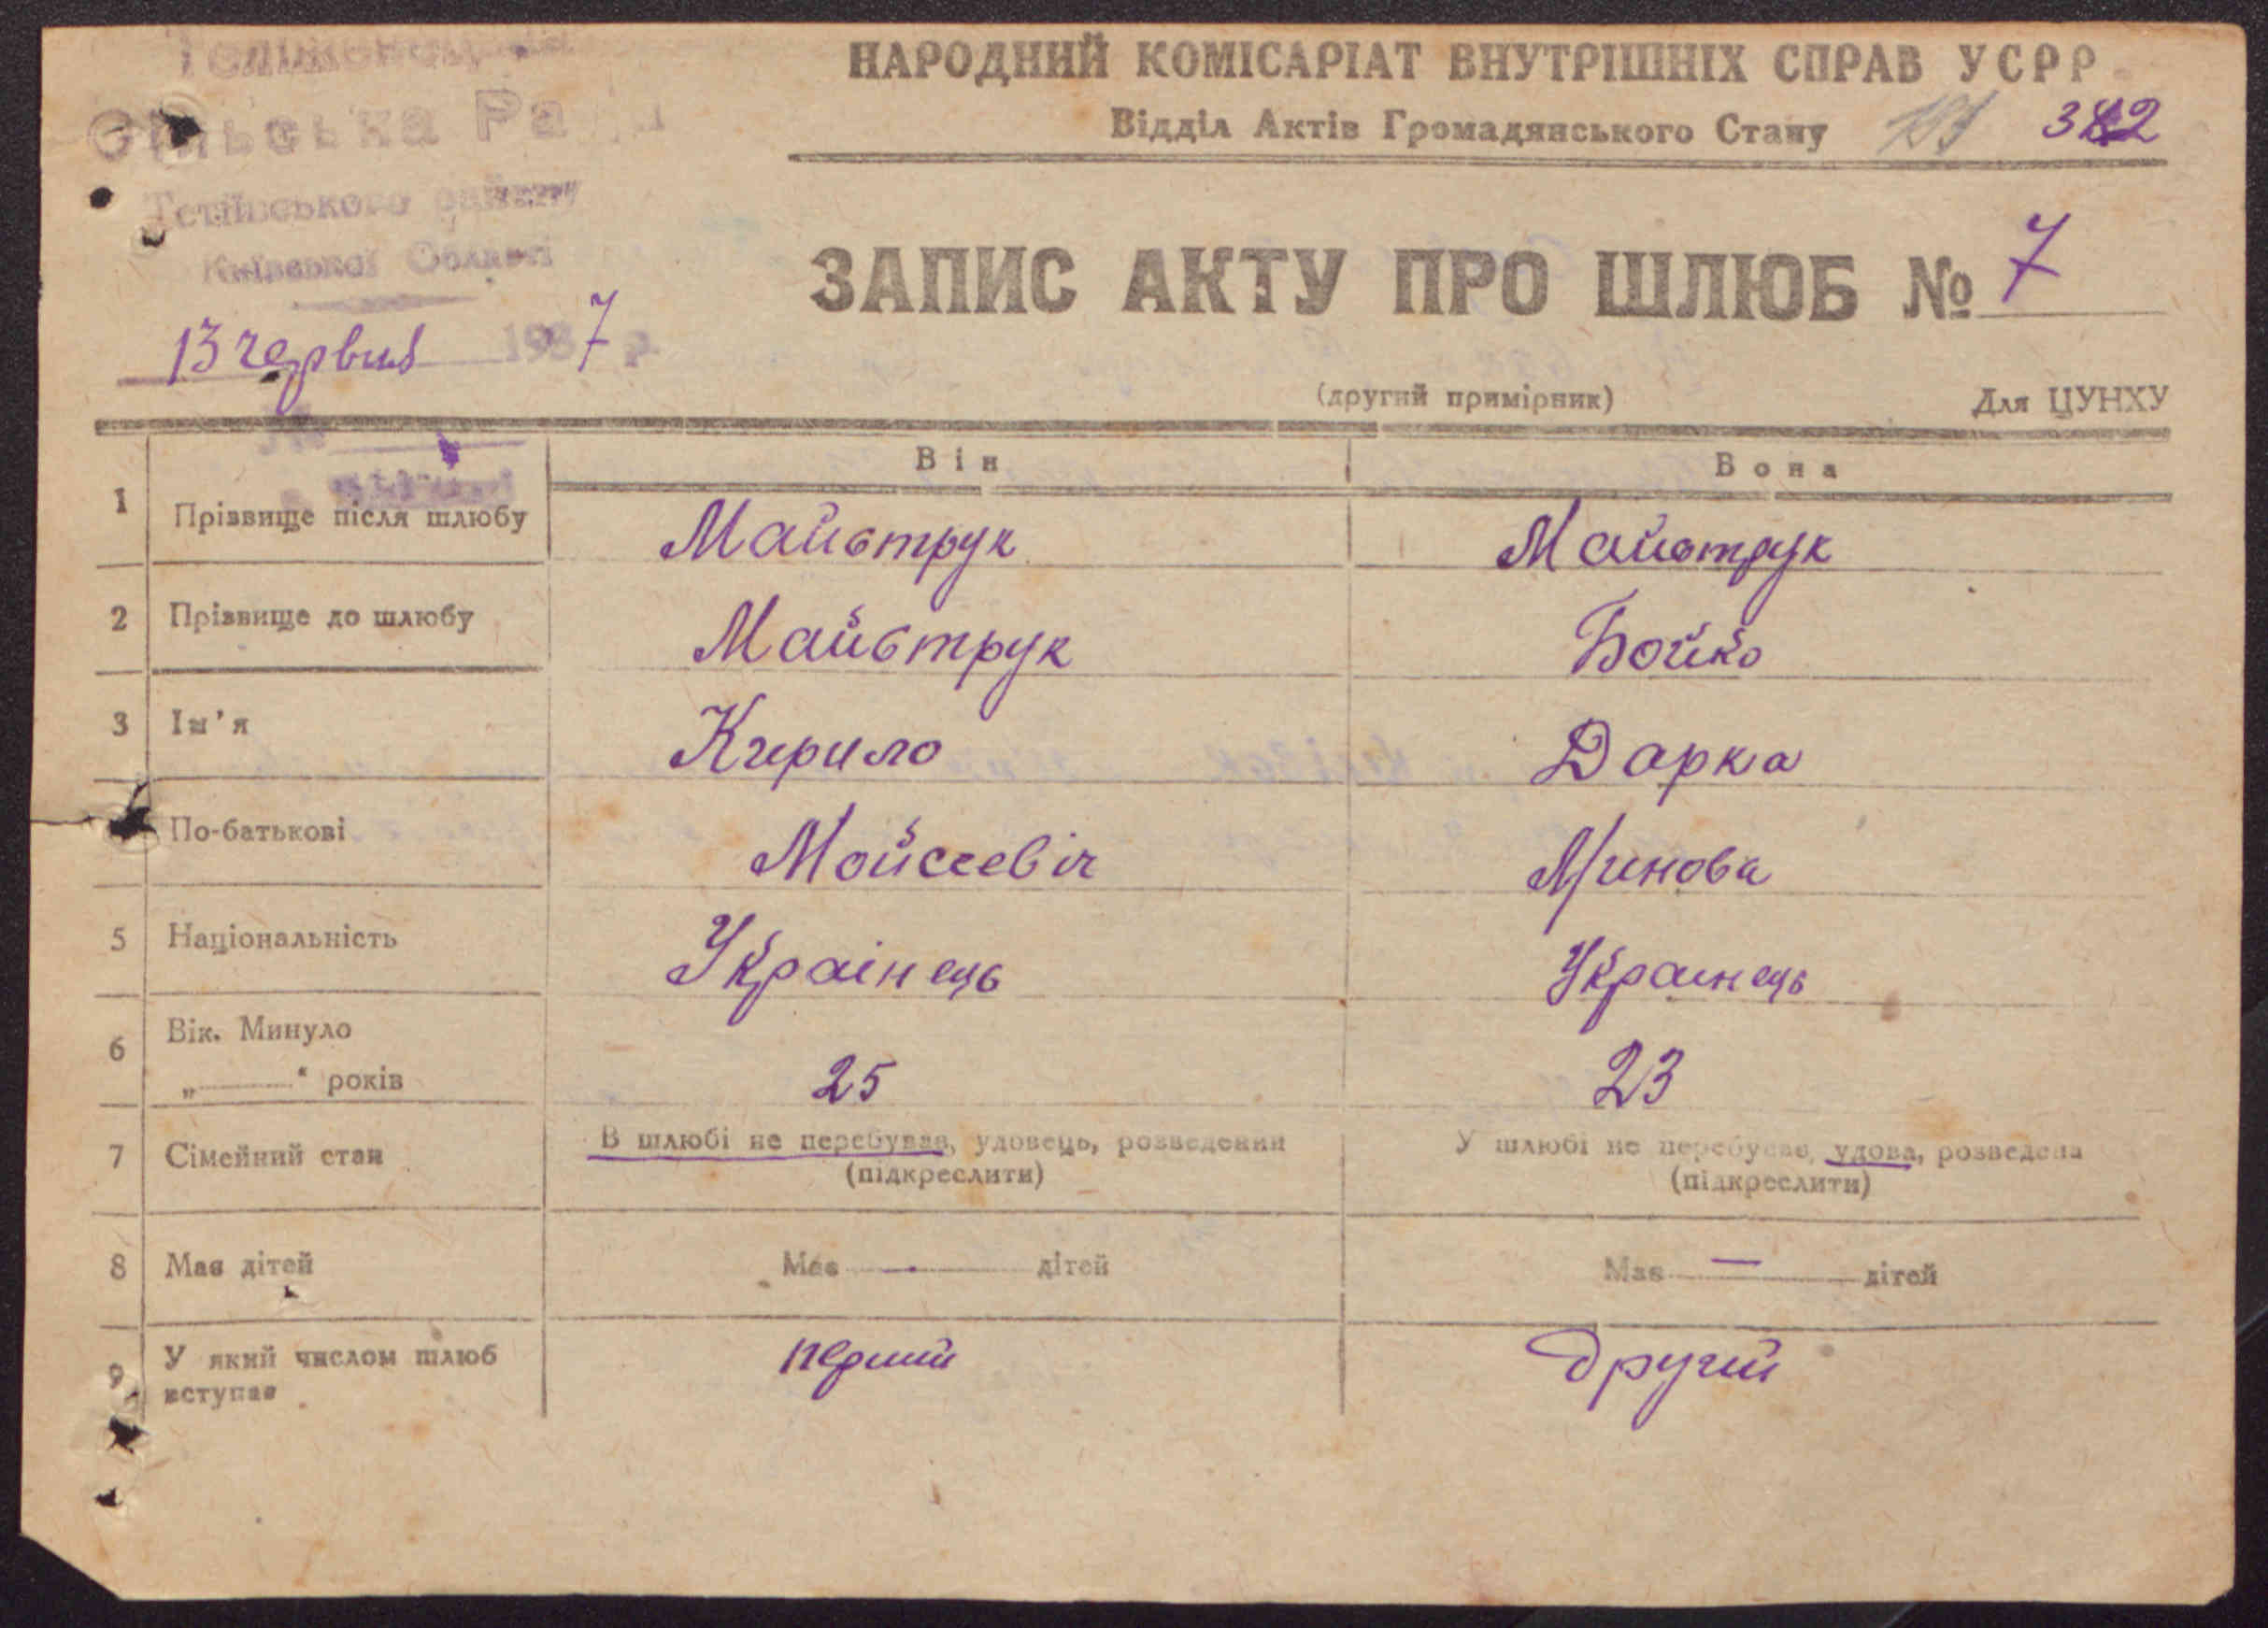 НАРОДНИЙ КОМІСАРІАТ ВНУТРІШНІХ СПРАВ УСРР
Відділ Актів Громадянського Стану
Сільська Рада
Тетіївського району
Київської Области
13 червня 1937 р.
ЗАПИС АКТУ ПРО ШЛЮБ № 7
(другий примірник) Для ЦУНХУ
Він Вона
1 Прізвище після шлюбу Майструк Майструк
2 Прізвище до шлюбу Майструк Бойко
3 Ім'я Кирило Дарка
По-батькові Мойсеевіч Минова
5 Національність Украінець Украинець
6 Вік. Минуло
„ “ років 25 23
7 Сімейний стан В шлюбі не перебував, удовець, розведений У шлюбі не перебувае, удова, розведена
(підкреслити) (підкреслити)
8 Має дітей Має — дітей Має — дітей
9 У який числом шлюб перший другий
вступає